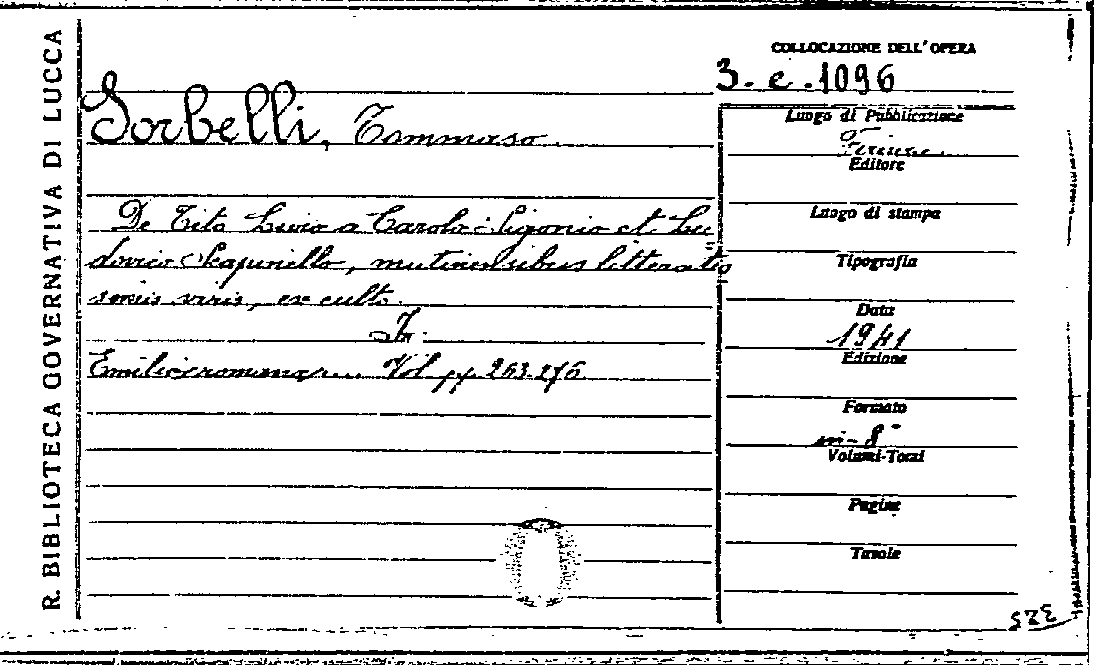 R. BIBLIOTECA GOVERNATIVA DI LUCCA
COLLOCAZIONE DELL'OPERA
3. e. 1096
Sorbelli, Tommaso
De Tito Livio a Carolo Sigonio et Lu
dovico Scapinello, mutinensibus litteratis
simis viris, ex culto.
In:
Vol. pp. 263-276
Luogo di Pubblicazione
Firenze
Editore
Luogo di stampa
Tipografia
Data
1941
Edizione
Formato
in-8°
Volumi-Tomi
Pagine
Tavole